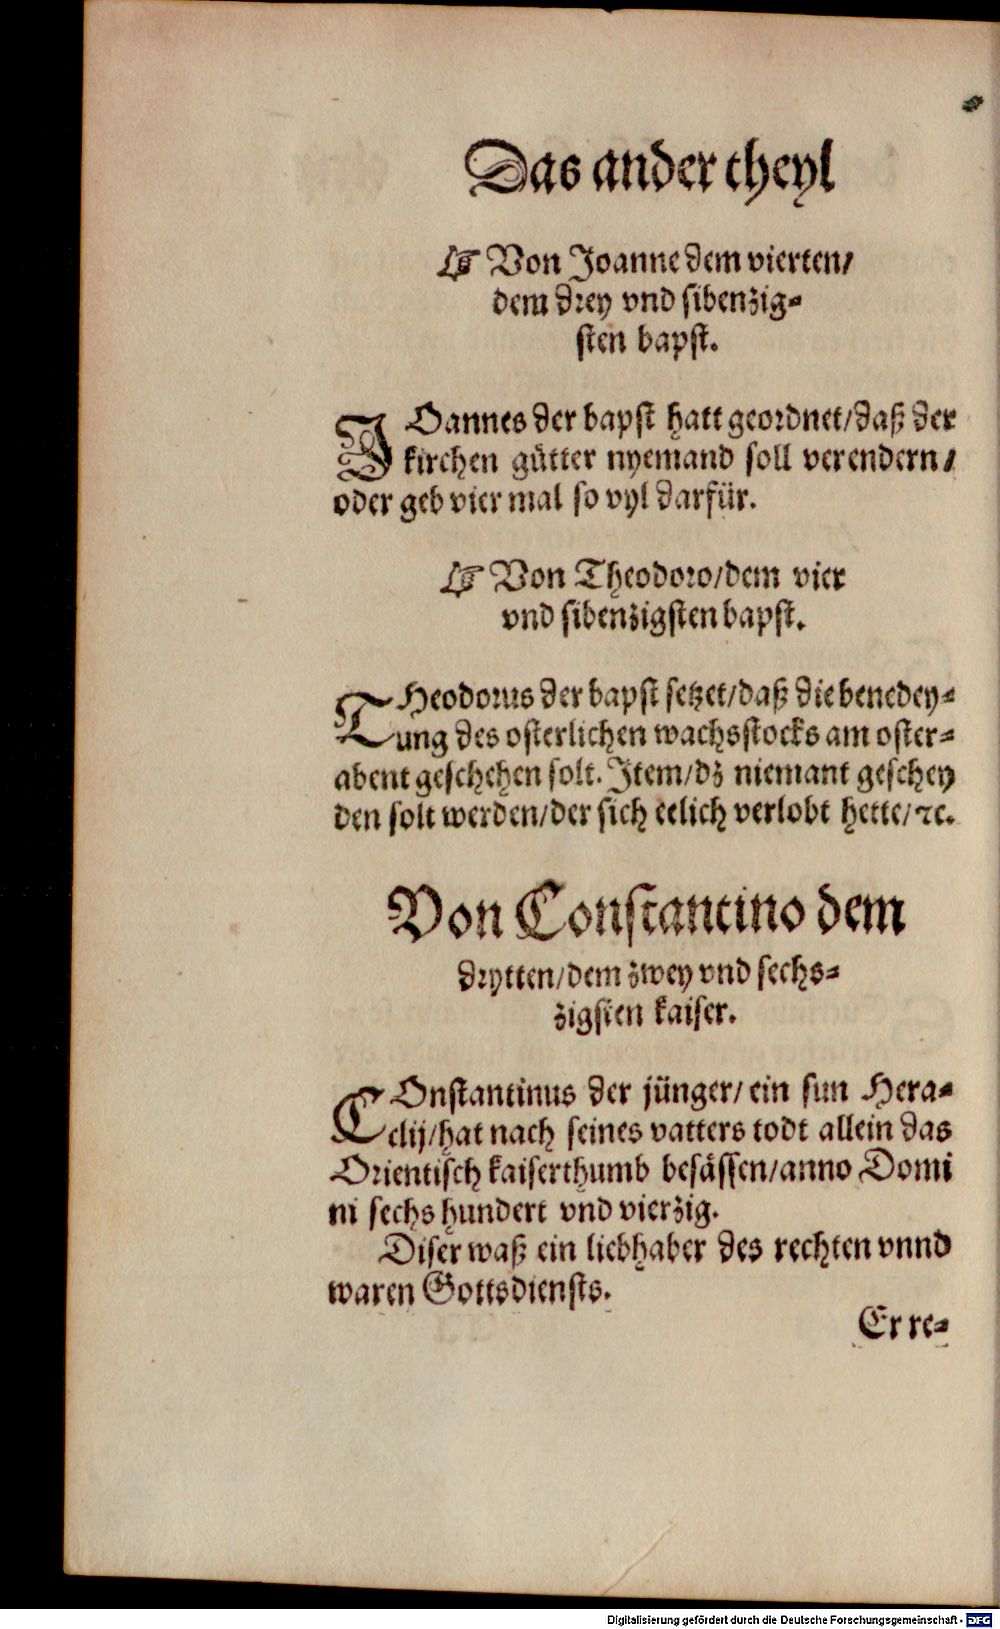 Das ander theyl
☞ Von Joanne dem vierten/
dem drey vnd sibenzig⸗
sten bapst.
JOannes der bapst hatt geordnet/daß der
kirchen gütter nyemand soll verendern/
oder geb vier mal so vyl darfür.
☞ Von Theodoro/dem vier
vnd sibenzigsten bapst.
THeodorus der bapst setzet/daß die benedey⸗
ung des osterlichen wachsstocks am oster⸗
abent geschehen solt. Item/dz niemant geschey
den solt werden/der sich eelich verlobt hette/ꝛc.
Von Constantino dem
drytten/dem zwey vnd sechs⸗
zigsten kaiser.
COnstantinus der jünger/ein sun Hera⸗
clij/hat nach seines vatters todt allein das
Orientisch kaiserthumb besässen/anno Domi
ni sechs hundert vnd vierzig.
Diser waß ein liebhaber des rechten vnnd
waren Gottsdiensts.
Er re⸗
Digitalisierung gefördert durch die Deutsche Forschungsgemeinschaft - DFG